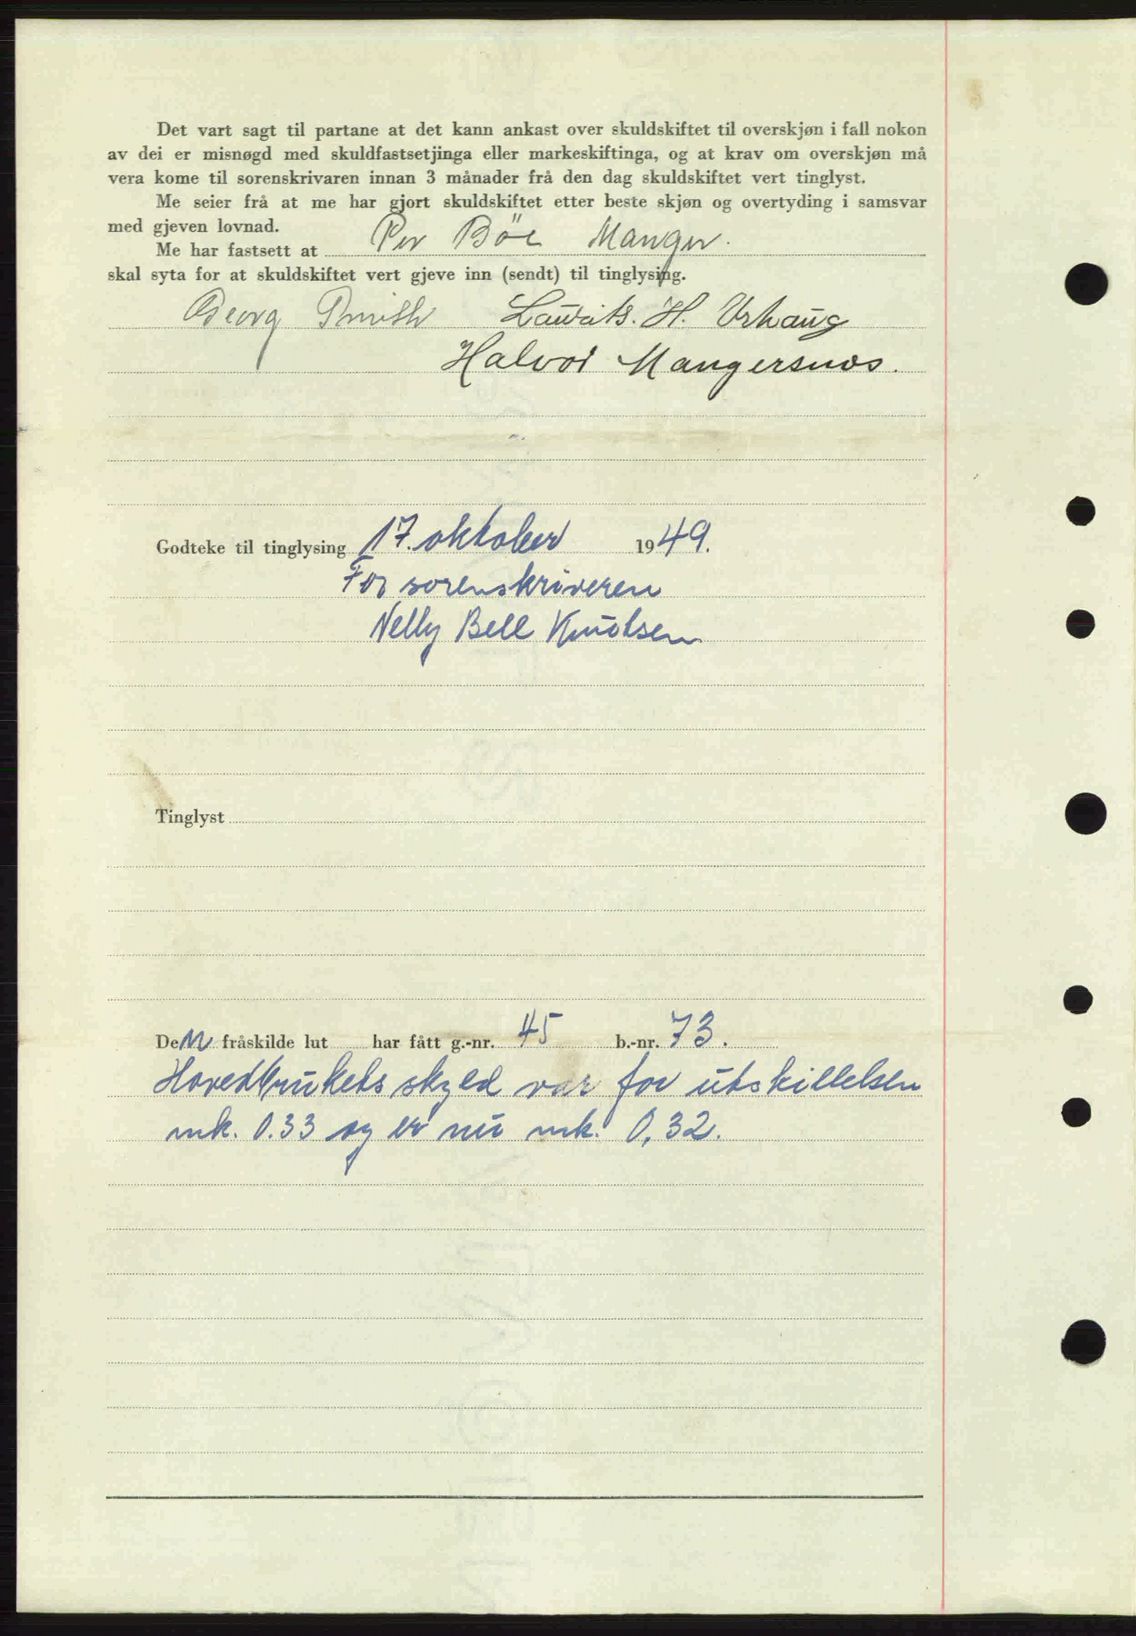 Det vart sagt til partane at det kann ankast over skuldskiftet til overskjøn i fall nokon
av dei er misnøgd med skuldfastsetjinga eller markeskiftinga, og at krav om overskjøn må
vera kome til sorenskrivaren innan 3 månader frå den dag skuldskiftet vert tinglyst.
Me seier frå at me har gjort skuldskiftet etter beste skjøn og overtyding i samsvar
med gjeven lovnad.
Me har fastsett at Per Böe Manger.
skal syta for at skuldskiftet vert gjeve inn (sendt) til tinglysing.
Georg Smith Laurits. H. Urhaug
Halvor Mangersnes.
Godteke til tinglysing 17. oktober 1949.
For sorenskriveren
Nelly Bell Knutsen
Tinglyst
Den fråskilde lut har fått g.-nr. 45 b.-nr. 73.
Hovedbrukets skyld var før utskillelsen
mk. 0.33 og er nu mk. 0,32.